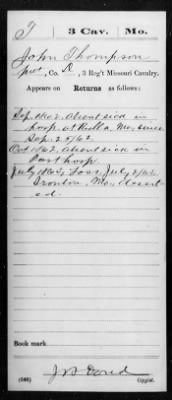 T
3 Cav. Mo.
John Thompson
Pvt, Co. , 3 Reg't Missouri Cavalry.
Appears on
Returns as follows:
Sep. 1862, absent sick in
hosp. at Rolla, Mo. since
Sep. 25/62
Oct 1862, absent sick in
Post hosp.
July 1863, Loss, July 2/63
Ironton, Mo. desert-
ed.
Book mark
(546)
Copyist.